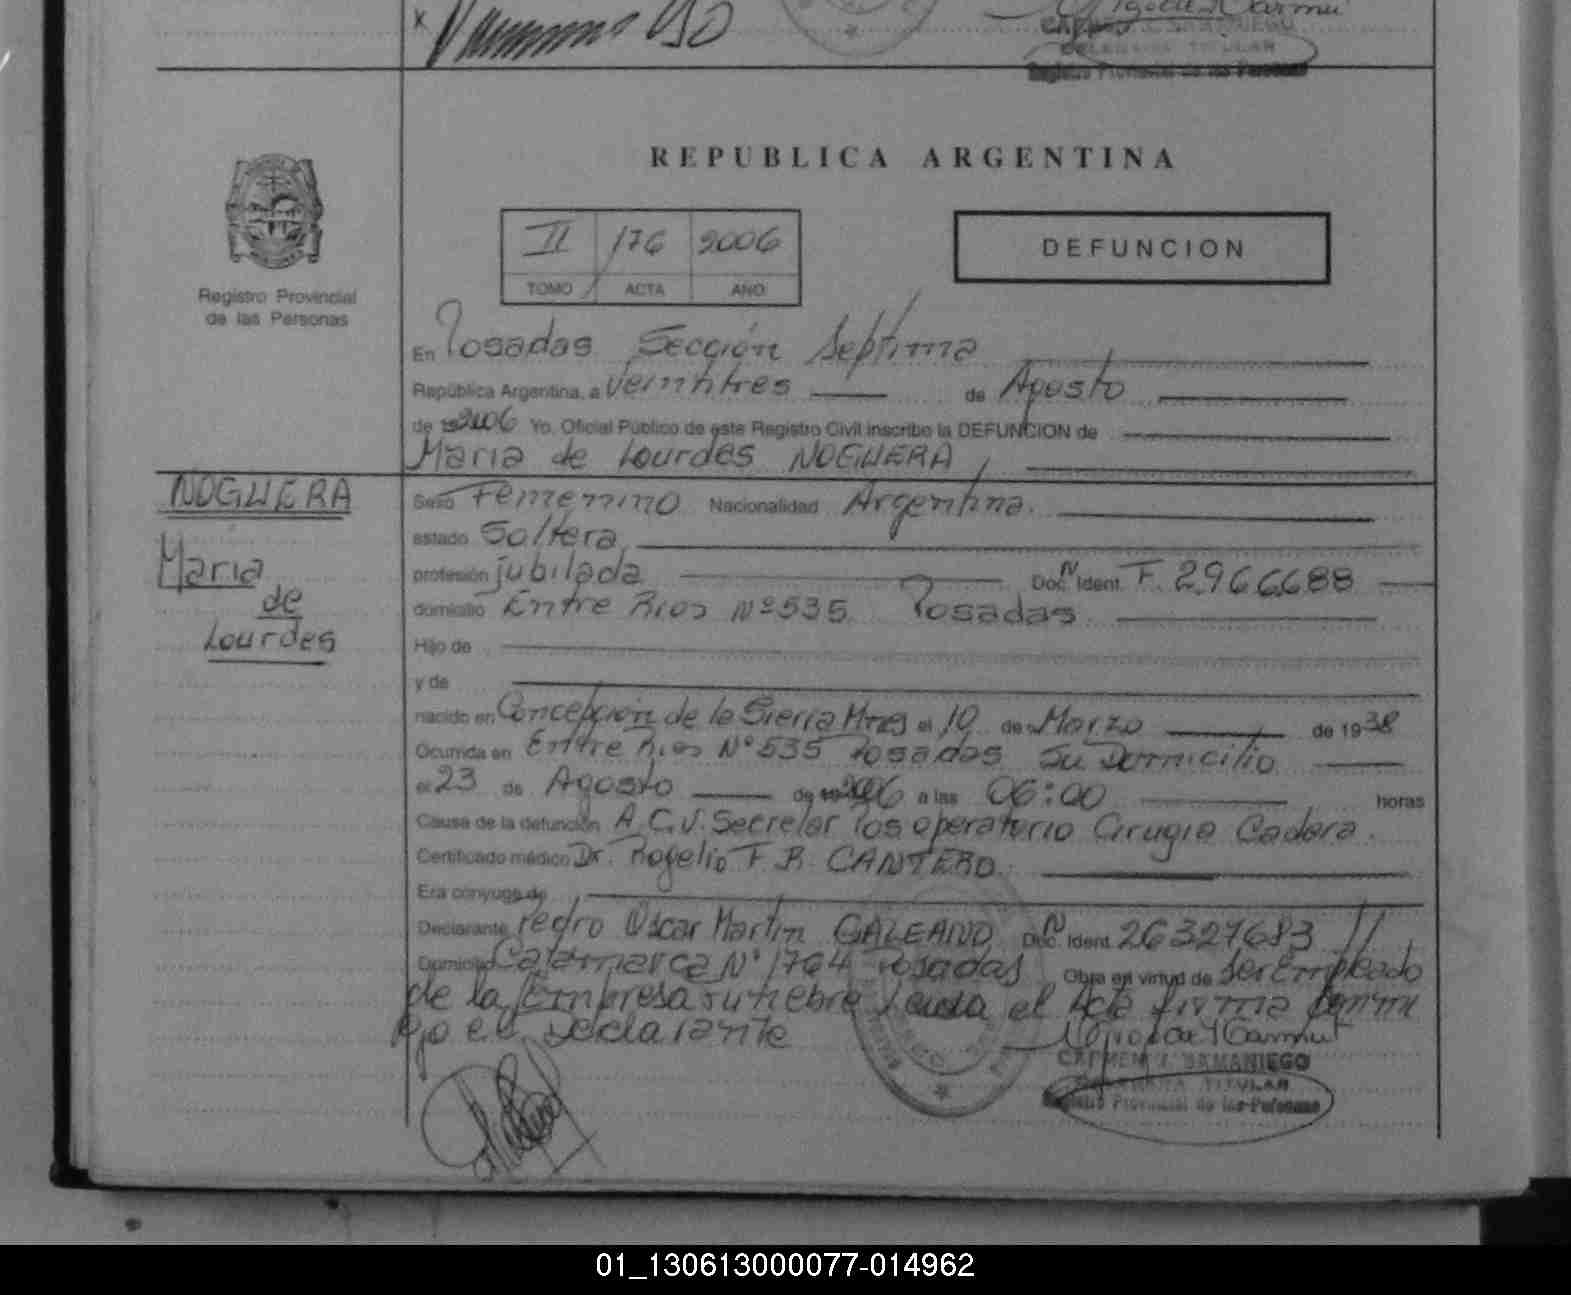 CARMEN SAMANIEGO
DELEGADA TITULAR
Registro Provincial de las Personas
REPUBLICA ARGENTINA
II 176 2006
TOMO ACTA AÑO
DEFUNCION
Registro Provincial
de las Personas
En Posadas Sección Septima
República Argentina, a veintitres de Agosto
de 2006 Yo, Oficial Público de este Registro Civil inscribo la DEFUNCION de
Maria de Lourdes NOGUERA
NOGUERA
Maria
de
Lourdes
Sexo Femenino Nacionalidad Argentina.
estado Soltera
profesión jubilada Doc. N Ident. F. 2966688
domicilio Entre Rios Nº 535 Posadas
Hijo de
y de
nacido en Concepción de la Sierra Mnes el 10 de Marzo de 1938
Ocurrida en Entre Rios Nº 535 Posadas Su Domicilio
el 23 de Agosto de 2006 a las 06:00 horas
Causa de la defunción A.C.V. Secretor Posoperatorio Cirugia Cadera.
Certificado médico Dr. Rogelio F. R. CANTERO.
Era cónyuge de
Declarante Pedro Oscar Martin GALEANO Doc. N Ident. 26327683 //
Domicilio Catamarca Nº 1764 Posadas Obra en virtud de ser Empleado
de la Empresa Funebre Leida el Acta firma
el Declarante
CARMEN SAMANIEGO
DELEGADA TITULAR
Registro Provincial de las Personas
01_130613000077-014962